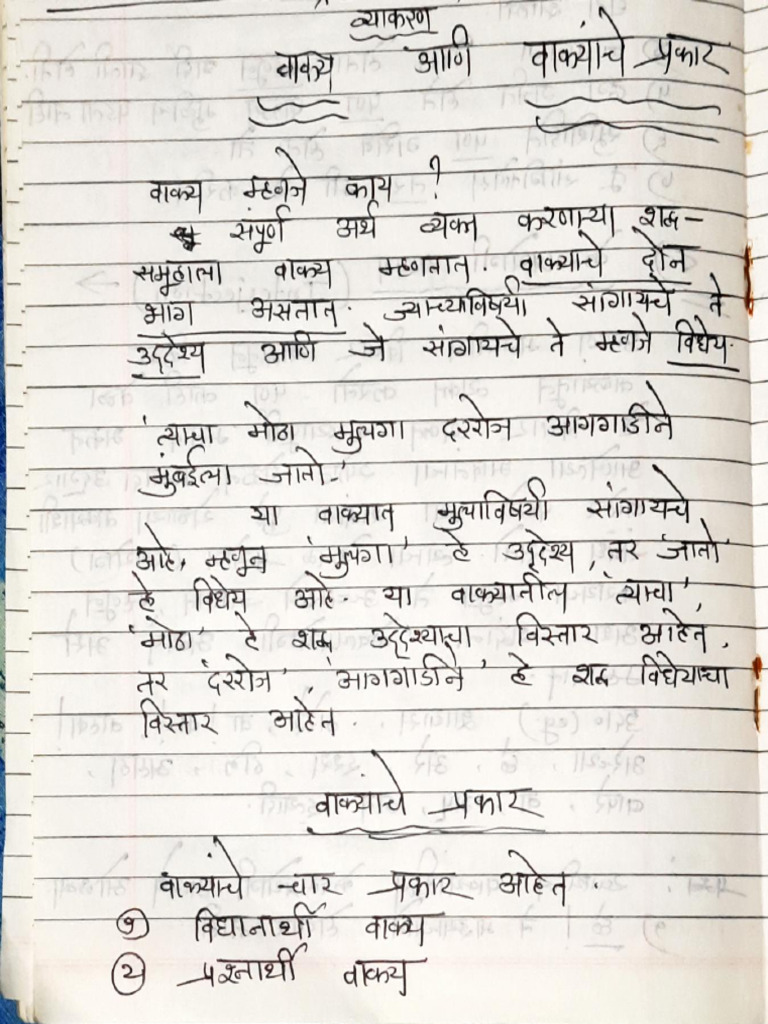 व्याकरण
वाक्य आणि वाक्यांचे प्रकार
वाक्य म्हणजे काय ?
संपूर्ण अर्थ व्यक्त करणाऱ्या शब्द-
समूहाला वाक्य म्हणतात. वाक्याचे दोन
भाग असतात. ज्याच्याविषयी सांगायचे ते
उद्देश्य आणि जे सांगायचे ते म्हणजे विधेय.
'त्याचा मोठा मुलगा दररोज आगगाडीने
मुंबईला जातो.'
या वाक्यात मुलाविषयी सांगायचे
आहे, म्हणून 'मुलगा' हे उद्देश्य, तर 'जातो'
हे विधेय आहे. या वाक्यातील 'त्याचा',
'मोठा' हे शब्द उद्देश्याचा विस्तार आहेत,
तर 'दररोज', 'आगगाडीने' हे शब्द विधेयाचा
विस्तार आहेत.
वाक्यांचे प्रकार
वाक्यांचे चार प्रकार आहेत.
१) विधानार्थी वाक्य
२) प्रश्नार्थी वाक्य